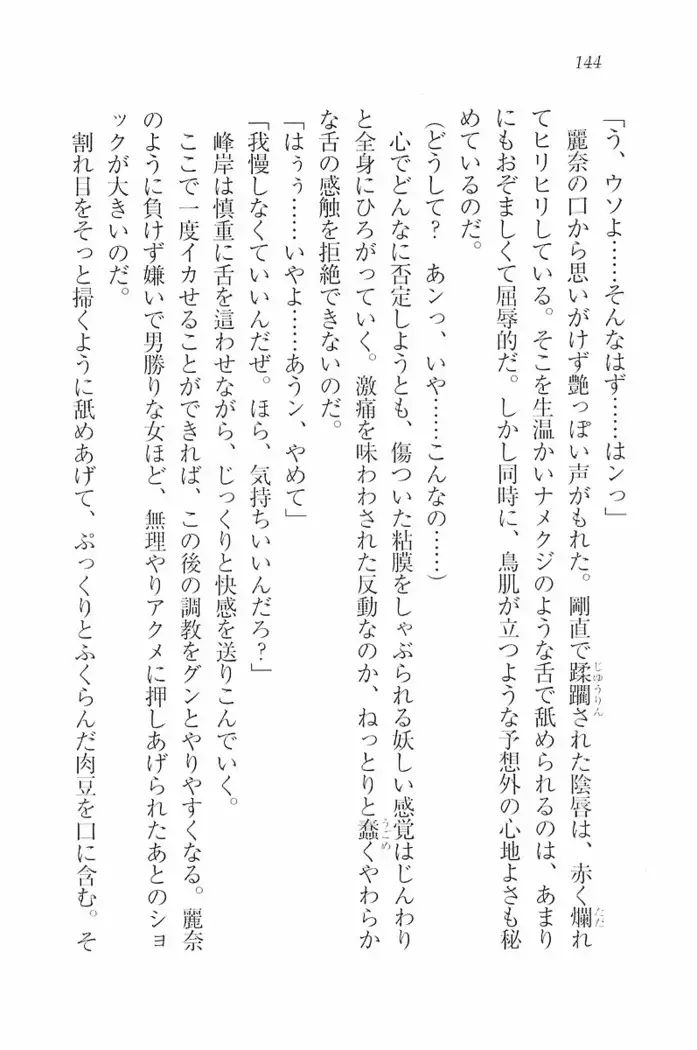 144
「う、ウソよ……そんなはず……はンっ」
麗奈の口から思いがけず艶っぽい声がもれた。剛直で蹂躙された陰唇は、赤く爛れ
じゆうりん
ただ
てヒリヒリしている。そこを生温かいナメクジのような舌で舐められるのは、あまり
にもおぞましくて屈辱的だ。しかし同時に、鳥肌が立つような予想外の心地よさも秘
めているのだ。
（どうして？　あンっ、いや……こんなの……）
心でどんなに否定しようとも、傷ついた粘膜をしゃぶられる妖しい感覚はじんわり
と全身にひろがっていく。激痛を味わわされた反動なのか、ねっとりと蠢くやわらか
うごめ
な舌の感触を拒絶できないのだ。
「はぅぅ……いやよ……あうン、やめて」
「我慢しなくていいんだぜ。ほら、気持ちいいんだろ？」
峰岸は慎重に舌を這わせながら、じっくりと快感を送りこんでいく。
ここで一度イカせることができれば、この後の調教をグンとやりやすくなる。麗奈
のように負けず嫌いで男勝りな女ほど、無理やりアクメに押しあげられたあとのショ
ックが大きいのだ。
割れ目をそっと掃くように舐めあげて、ぷっくりとふくらんだ肉豆を口に含む。そ